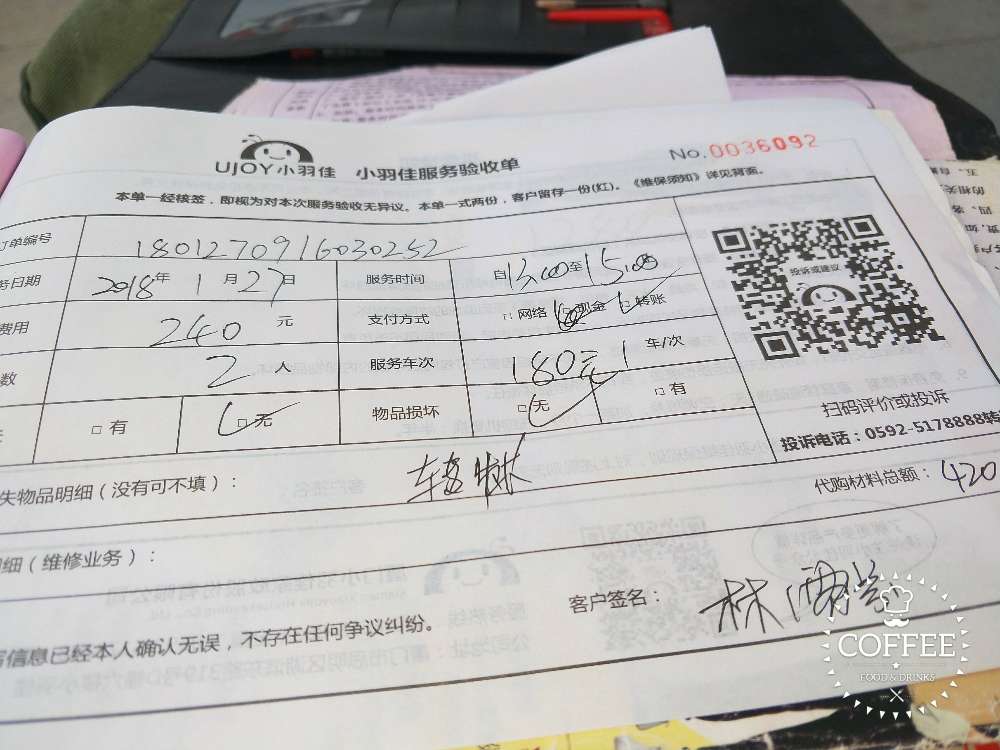 UJOY小羽佳 小羽佳服务验收单 No.0036092
本单一经核签，即视为对本次服务验收无异议。本单一式两份，客户留存一份(红)。《维保须知》详见背面。
订单编号 1801270916030252
务日期 2018年 1月27日 服务时间 自13:00至15:00
费用 240 元 支付方式 □网络 □现金 □转账
数 2 人 服务车次 180元 1 车/次
□有 □无 物品损坏 □无 □有
投诉或建议
扫码评价或投诉
投诉电话：0592-5178888转
失物品明细（没有可不填）： 代购材料总额：420
明细（维修业务）：
信息已经本人确认无误，不存在任何争议纠纷。 客户签名： 林
COFFEE
FOOD & DRINKS